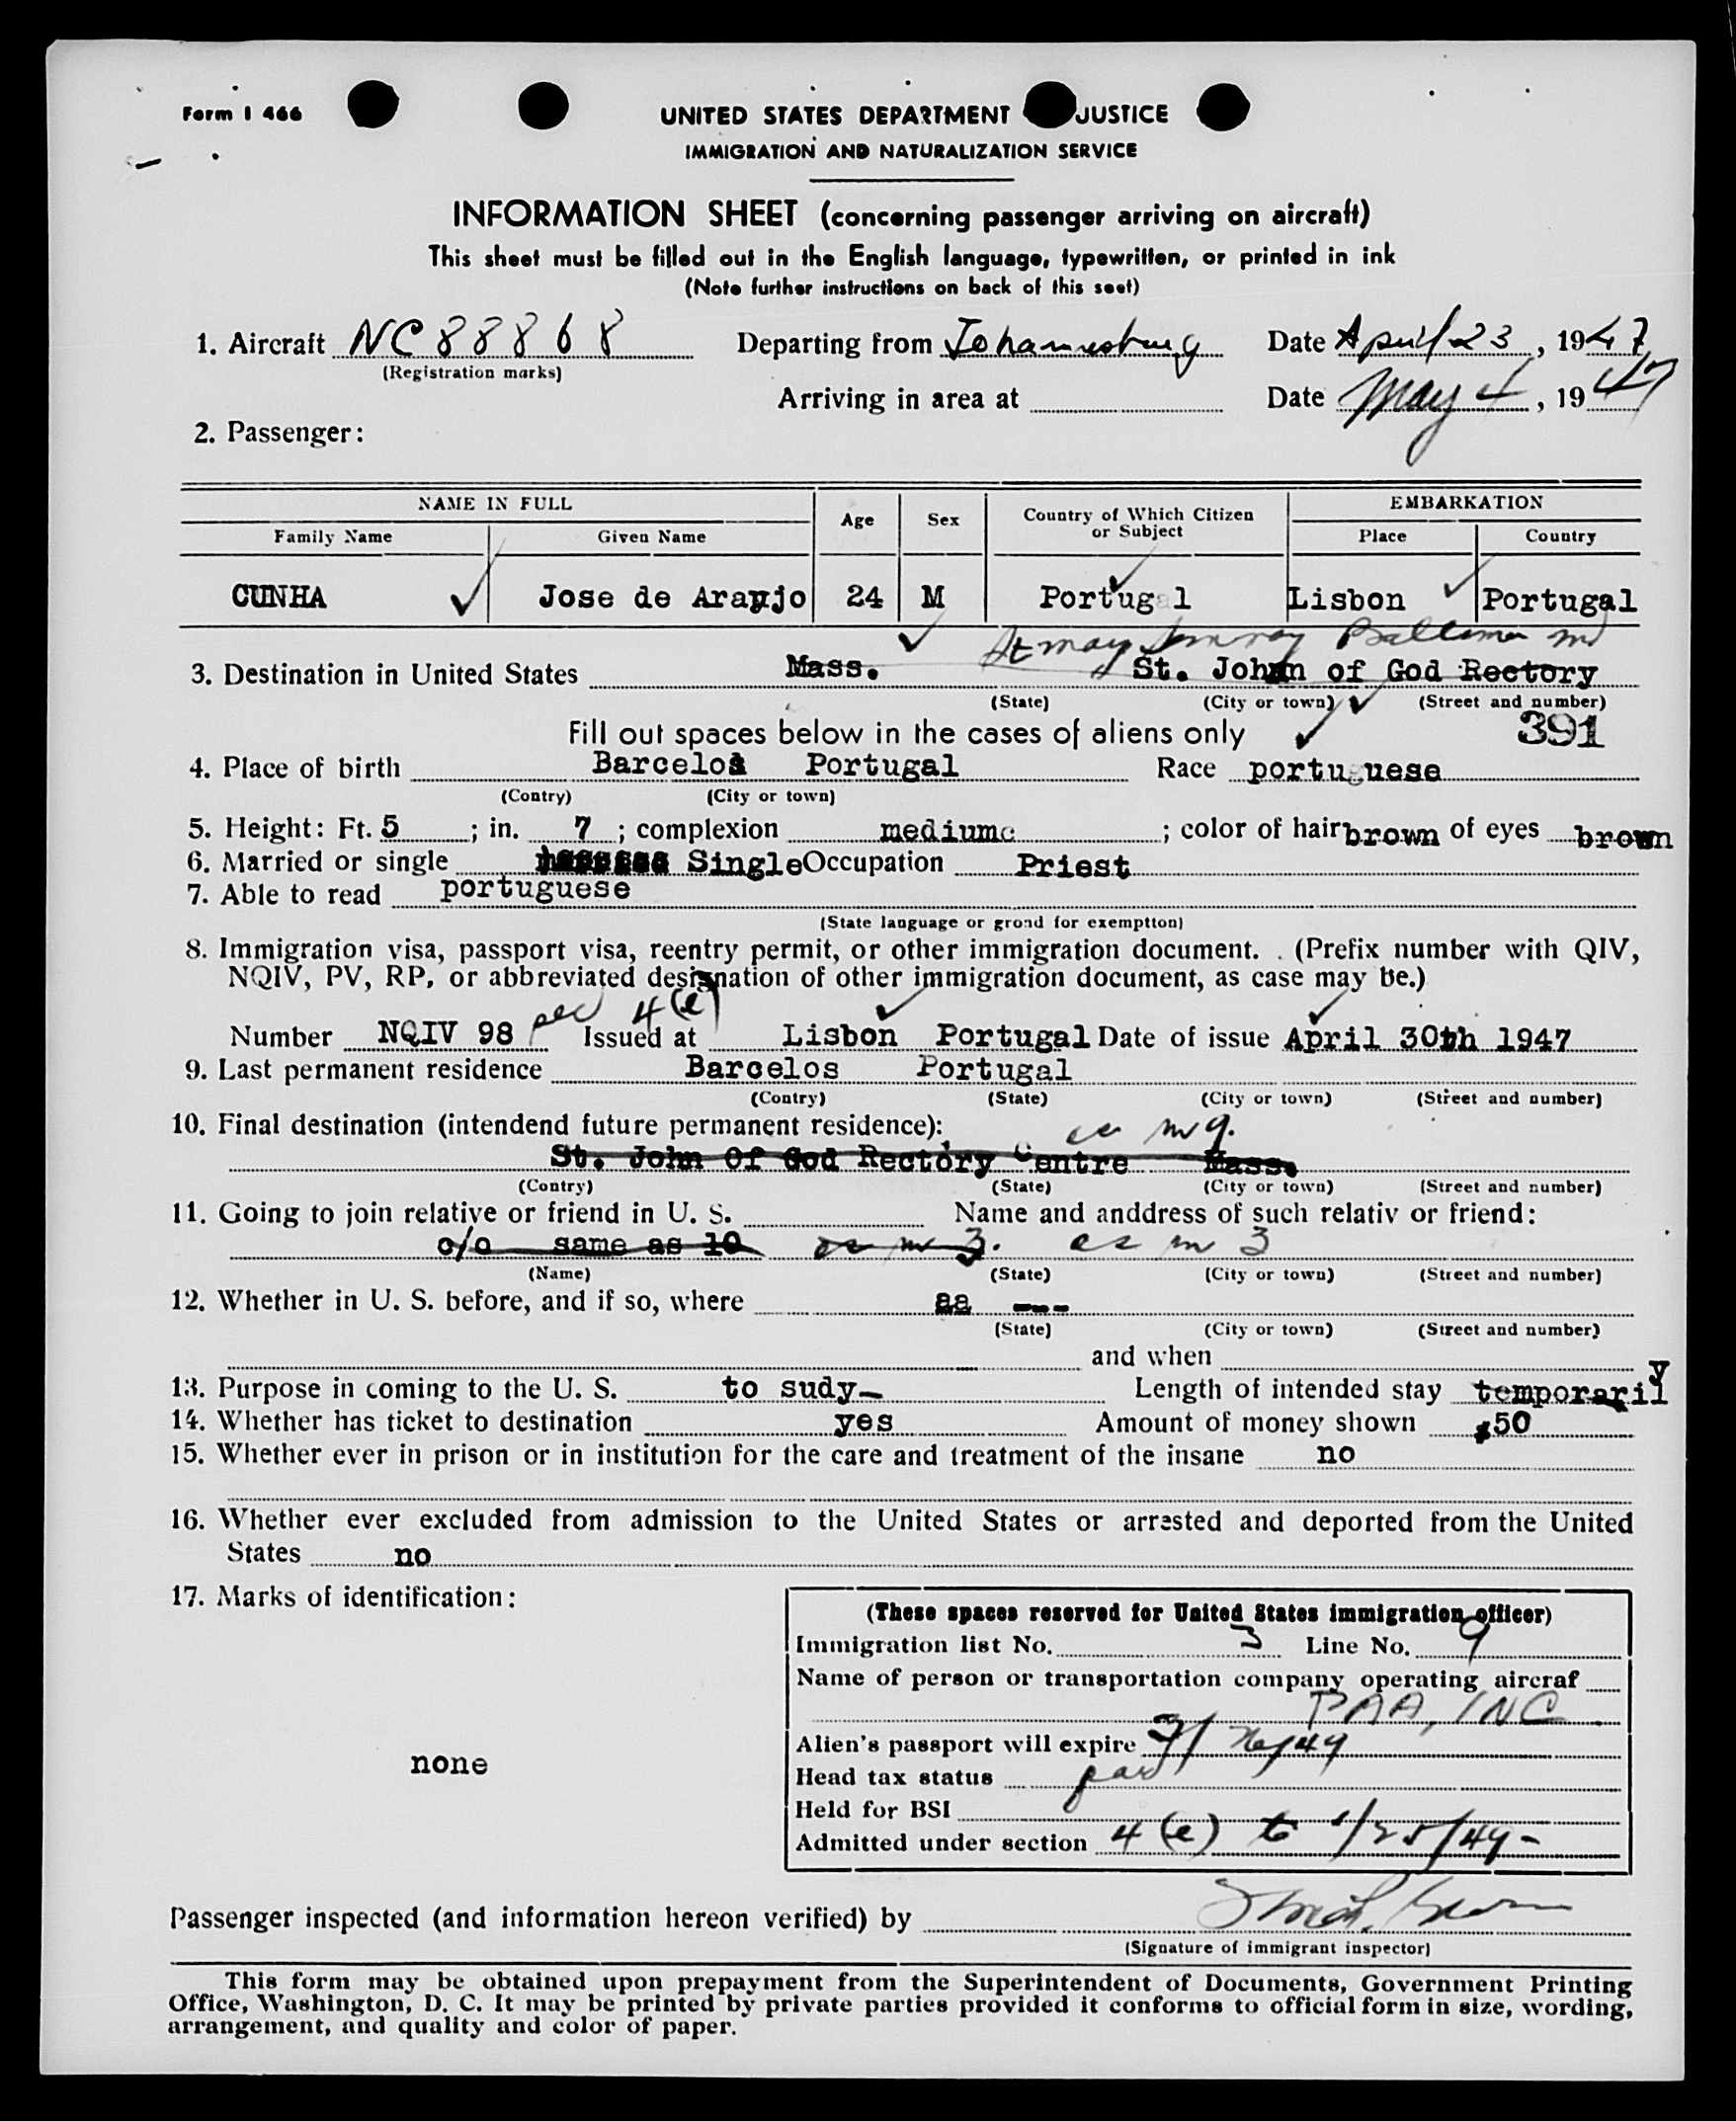 Form I 466
UNITED STATES DEPARTMENT JUSTICE
IMMIGRATION AND NATURALIZATION SERVICE
INFORMATION SHEET (concerning passenger arriving on aircraft)
This sheet must be filled out in the English language, typewritten, or printed in ink
(Note further instructions on back of this seet)
1. Aircraft NC 88868 Departing from Johannesburg Date April 23, 1947
(Registration marks)
Arriving in area at Date May 4, 1947
2. Passenger:
NAME IN FULL Age Sex Country of Which Citizen or Subject EMBARKATION
Family Name Given Name Place Country
CUNHA Jose de Araujo 24 M Portugal Lisbon Portugal
St mary Baltimore md
3. Destination in United States Mass. St. John of God Rectory
(State) (City or town) (Street and number)
Fill out spaces below in the cases of aliens only 391
4. Place of birth Barcelos Portugal Race portuguese
(Contry) (City or town)
5. Height: Ft. 5 ; in. 7 ; complexion medium ; color of hair brown of eyes brown
6. Married or single Single Occupation Priest
7. Able to read portuguese
(State language or grond for exemptton)
8. Immigration visa, passport visa, reentry permit, or other immigration document. . (Prefix number with QIV,
NQIV, PV, RP, or abbreviated designation of other immigration document, as case may be.)
4(e)
Number NQIV 98 Issued at Lisbon Portugal Date of issue April 30th 1947
9. Last permanent residence Barcelos Portugal
(Contry) (State) (City or town) (Street and number)
10. Final destination (intendend future permanent residence): 9.
St. John Of God Rectory Centre Mass.
(Contry) (State) (City or town) (Street and number)
11. Going to join relative or friend in U. S. Name and anddress of such relativ or friend:
c/o same as 10 as in 3. as in 3
(Name) (State) (City or town) (Street and number)
12. Whether in U. S. before, and if so, where ---
(State) (City or town) (Street and number)
and when
13. Purpose in coming to the U. S. to sudy- Length of intended stay temporarily
14. Whether has ticket to destination yes Amount of money shown $50
15. Whether ever in prison or in institution for the care and treatment of the insane no
16. Whether ever excluded from admission to the United States or arrested and deported from the United
States no
17. Marks of identification:
none
(These spaces reserved for United States immigration officer)
Immigration list No. 3 Line No. 9
Name of person or transportation company operating aircraf
PAA, INC
Alien's passport will expire
Head tax status
Held for BSI
Admitted under section 4 (e) to 1/25/49-
Passenger inspected (and information hereon verified) by
(Signature of immigrant inspector)
This form may be obtained upon prepayment from the Superintendent of Documents, Government Printing
Office, Washington, D. C. It may be printed by private parties provided it conforms to official form in size, wording,
arrangement, and quality and color of paper.